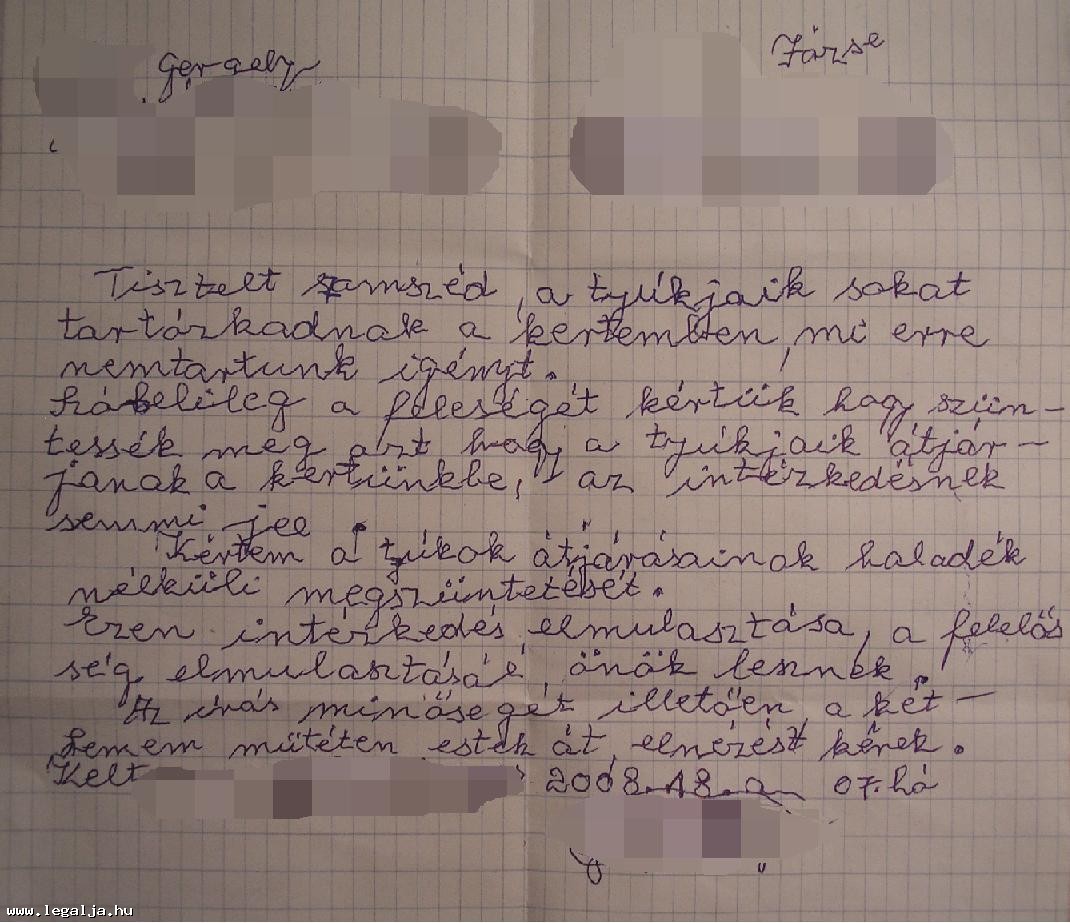 Gergely
Józse
Tisztelt szamszéd, a tyúkjaik sokat
tartózkadnak a kertemben, mi erre
nemtartunk igényt.
a feleségét kértük hagy szün-
tessék meg azt hagy a tyúkjaik átjár-
janak a kertünkbe, az intézkedésnek
semmi jee
Kértem a tyúkok átjárásainak haladék
nélküli megszüntetését.
Ezen intérkedés elmulasztása, a felelős
ség elmulasztásáé önök lesznek.
Az írás minőségét illetően, a két-
semem mütéten estek át, elnézést kérek.
Kelt 2008.18.a 07.há
www.legalja.hu